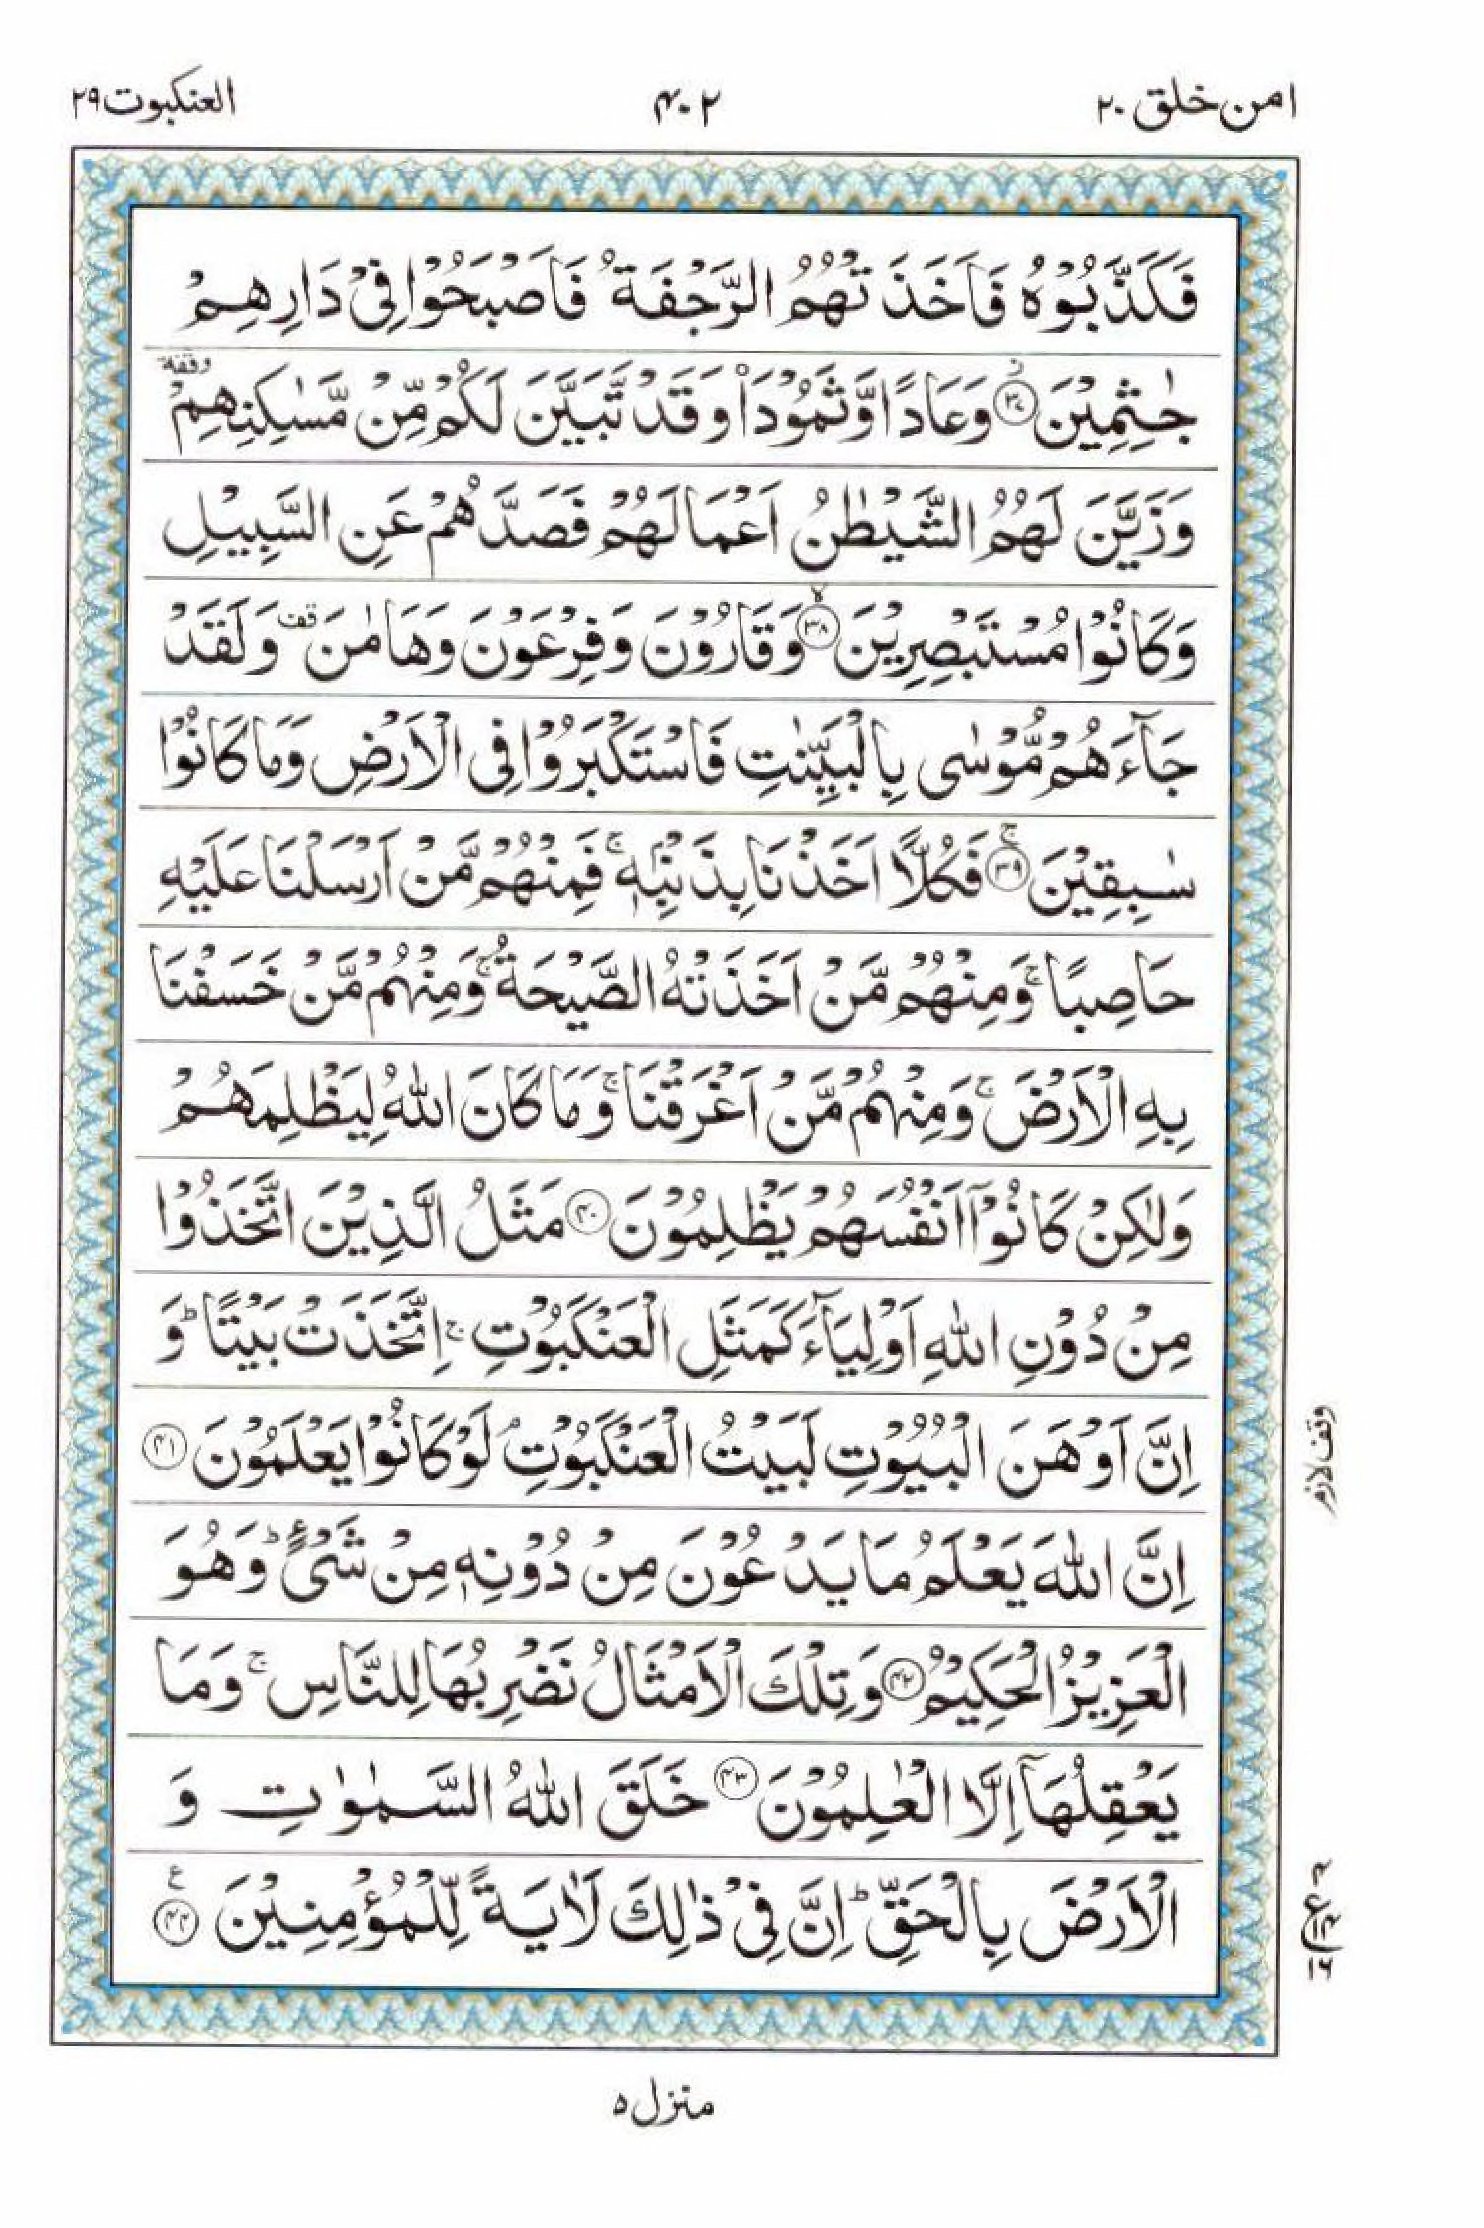 امن خلق ٢٠
٤٠٢
العنكبوت ٢٩
فَكَذَّبُوْهُ فَاَخَذَتْهُمُ الرَّجْفَةُ فَاَصْبَحُوْا فِيْ دَارِهِمْ
جٰثِمِيْنَ ۟ز ﴿٣٧﴾ وَعَادًا وَّثَمُوْدَا۟ وَقَدْ تَّبَيَّنَ لَكُمْ مِّنْ مَّسٰكِنِهِمْ وقفة
وَزَيَّنَ لَهُمُ الشَّيْطٰنُ اَعْمَالَهُمْ فَصَدَّهُمْ عَنِ السَّبِيْلِ
وَكَانُوْا مُسْتَبْصِرِيْنَ ۙ﴿٣٨﴾ وَقَارُوْنَ وَفِرْعَوْنَ وَهَامٰنَ قف وَلَقَدْ
جَآءَهُمْ مُّوْسٰى بِالْبَيِّنٰتِ فَاسْتَكْبَرُوْا فِى الْاَرْضِ وَمَا كَانُوْا
سٰبِقِيْنَ ۚ﴿٣٩﴾ فَكُلًّا اَخَذْنَا بِذَنْۢبِهٖ ۚ فَمِنْهُمْ مَّنْ اَرْسَلْنَا عَلَيْهِ
حَاصِبًا ۚ وَمِنْهُمْ مَّنْ اَخَذَتْهُ الصَّيْحَةُ ۚ وَمِنْهُمْ مَّنْ خَسَفْنَا
بِهِ الْاَرْضَ ۚ وَمِنْهُمْ مَّنْ اَغْرَقْنَا ۚ وَمَا كَانَ اللّٰهُ لِيَظْلِمَهُمْ
وَلٰكِنْ كَانُوْٓا اَنْفُسَهُمْ يَظْلِمُوْنَ ﴿٤٠﴾ مَثَلُ الَّذِيْنَ اتَّخَذُوْا
مِنْ دُوْنِ اللّٰهِ اَوْلِيَآءَ كَمَثَلِ الْعَنْكَبُوْتِ ۚ اِتَّخَذَتْ بَيْتًا ؕ وَ
اِنَّ اَوْهَنَ الْبُيُوْتِ لَبَيْتُ الْعَنْكَبُوْتِ ۘ لَوْ كَانُوْا يَعْلَمُوْنَ ﴿٤١﴾
اِنَّ اللّٰهَ يَعْلَمُ مَا يَدْعُوْنَ مِنْ دُوْنِهٖ مِنْ شَىْءٍ ؕ وَهُوَ
الْعَزِيْزُ الْحَكِيْمُ ﴿٤٢﴾ وَتِلْكَ الْاَمْثَالُ نَضْرِبُهَا لِلنَّاسِ ۚ وَمَا
يَعْقِلُهَآ اِلَّا الْعٰلِمُوْنَ ﴿٤٣﴾ خَلَقَ اللّٰهُ السَّمٰوٰتِ وَ
الْاَرْضَ بِالْحَقِّ ؕ اِنَّ فِيْ ذٰلِكَ لَاٰيَةً لِّلْمُؤْمِنِيْنَ ع ﴿٤٤﴾
وقف لازم
٤
ع ١٤
١٦
منزل ٥